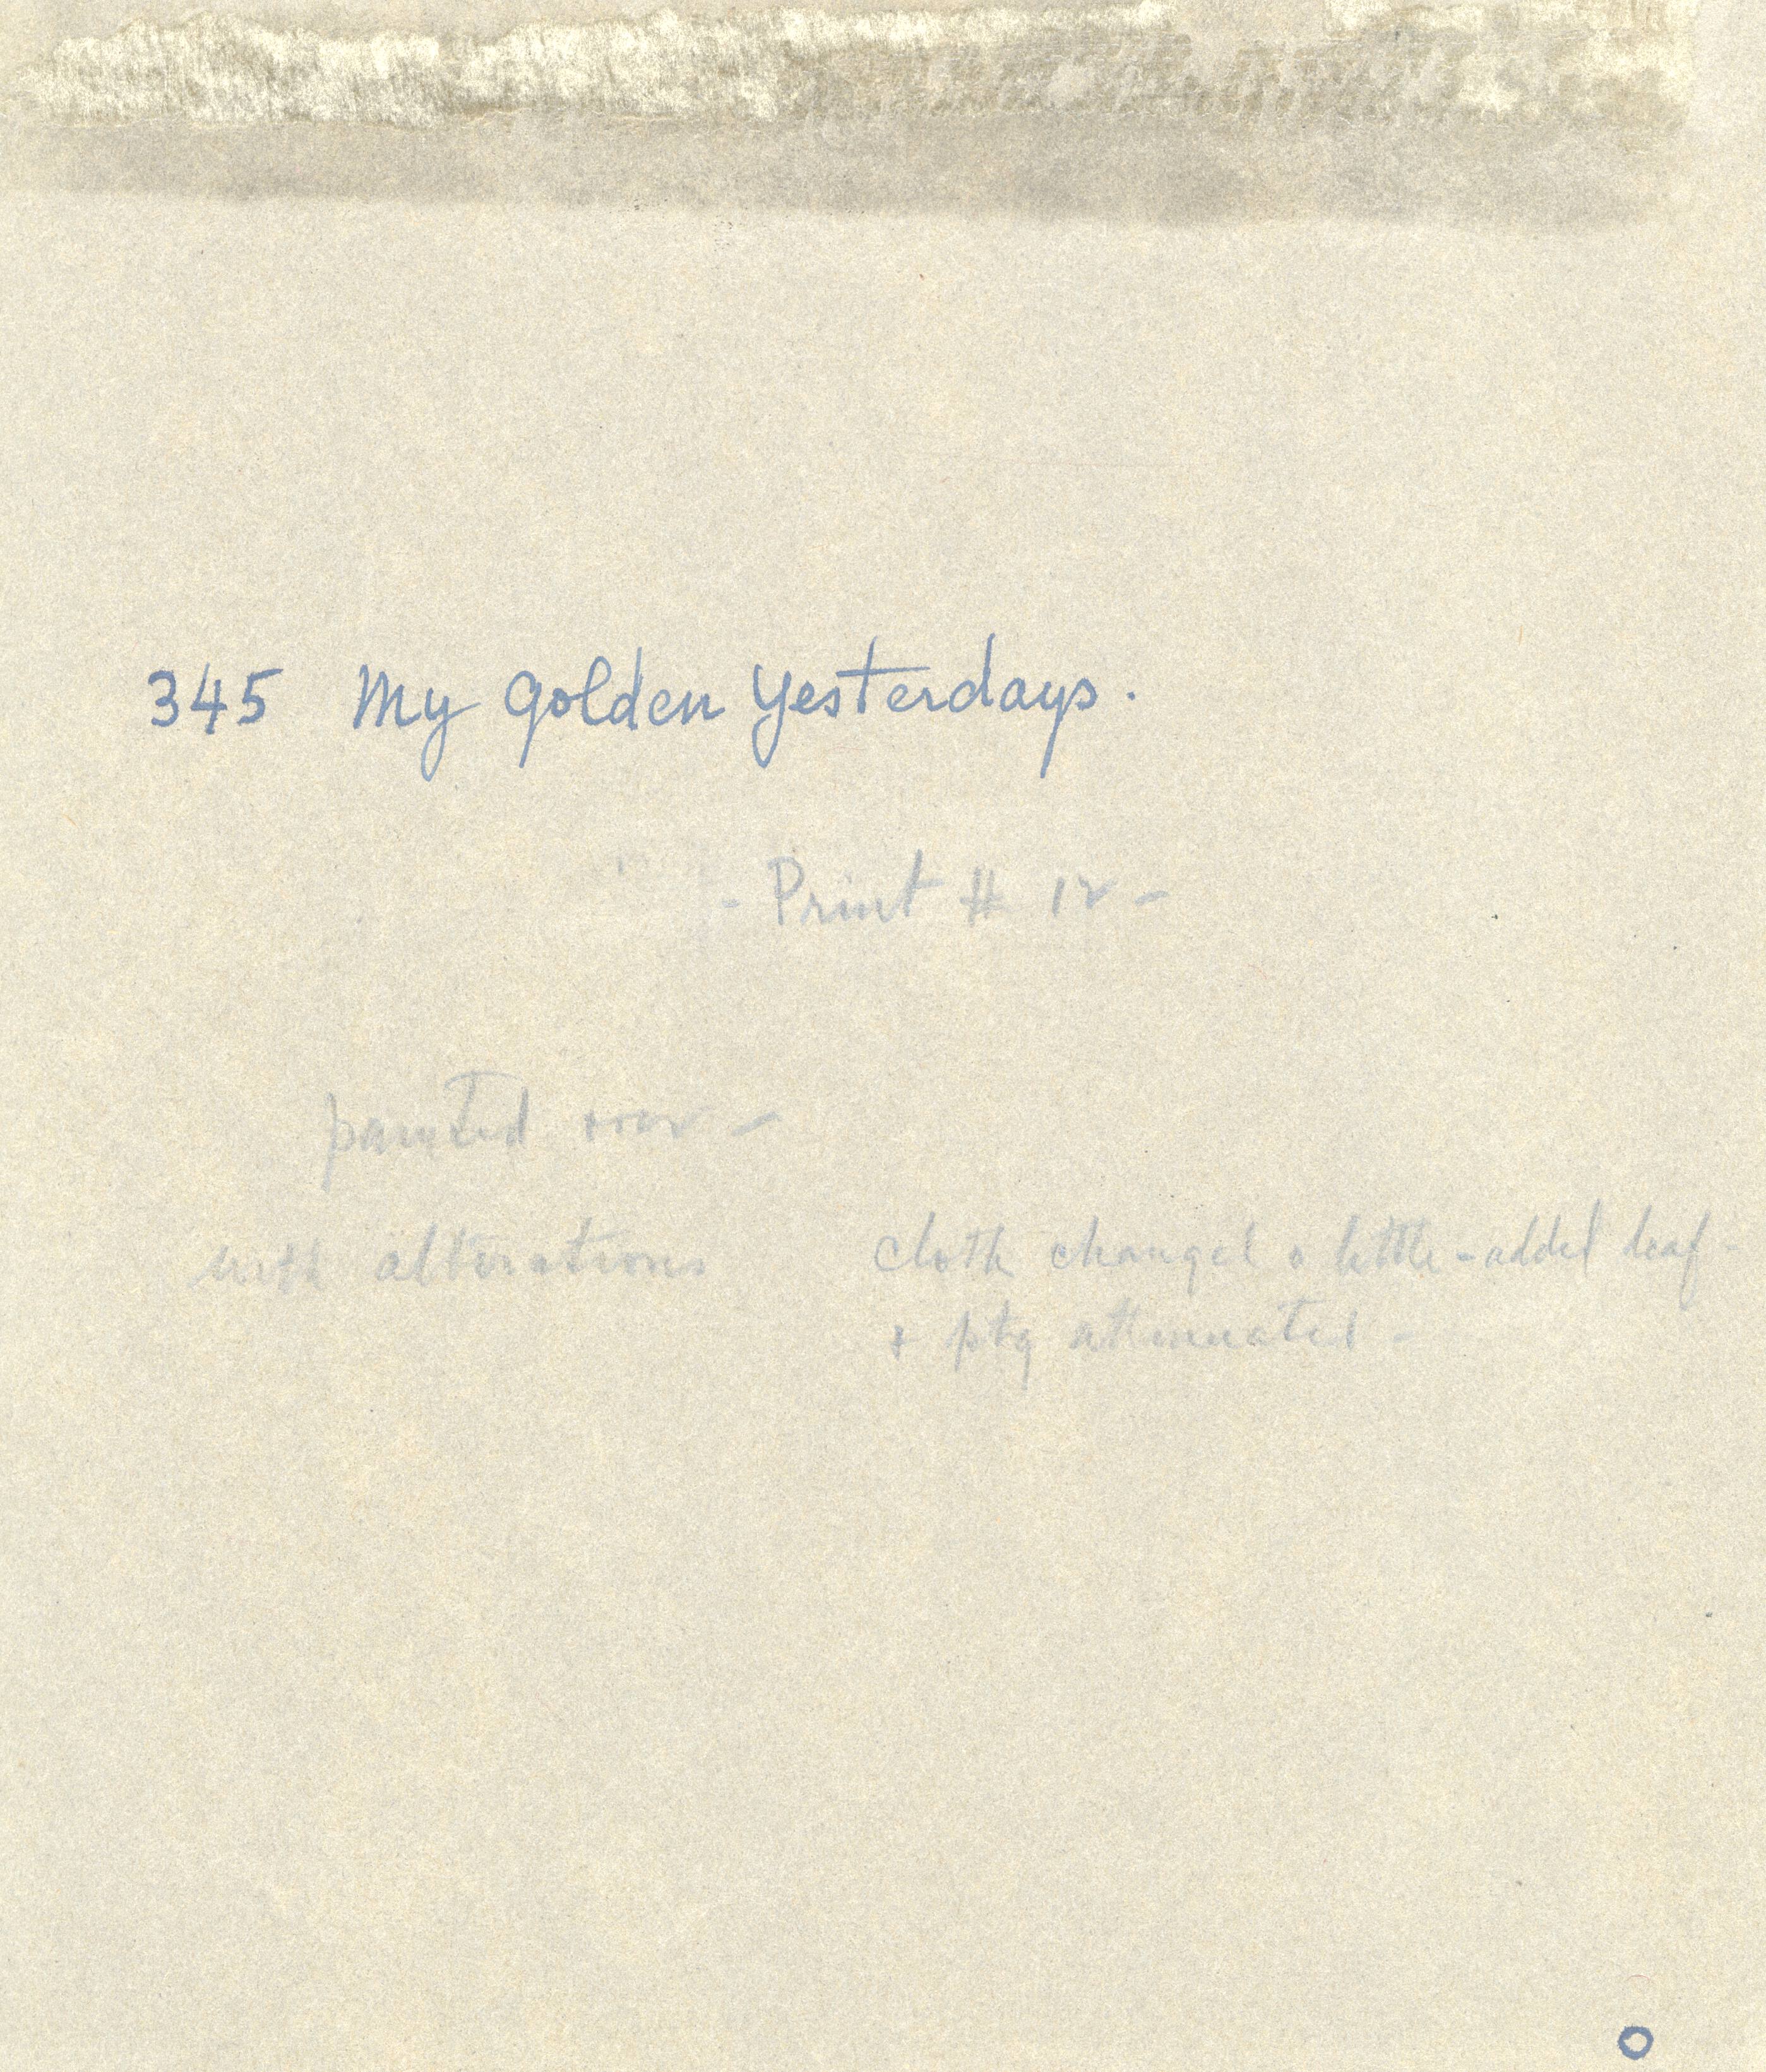 345 My golden yesterdays.
- Print # 12 -
painted over -
with alterations
cloth changed a little - added leaf -
+ ptg attenuated -